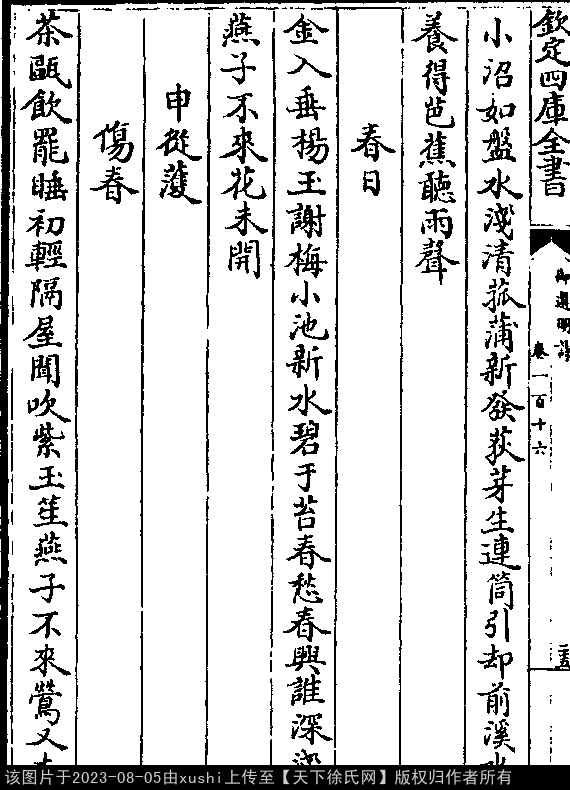 欽定四庫全書
御選明詩
卷一百十六
二五
小沼如盤水淺清菰蒲新發荻芽生連筒引却前溪水
養得芭蕉聽雨聲
春日
金入垂楊玉謝梅小池新水碧于苔春愁春興誰深淺
燕子不來花未開
申從濩
傷春
茶甌飲罷睡初輕隔屋聞吹紫玉笙燕子不來鶯又
该图片于2023-08-05由xushi上传至【天下徐氏网】版权归作者所有